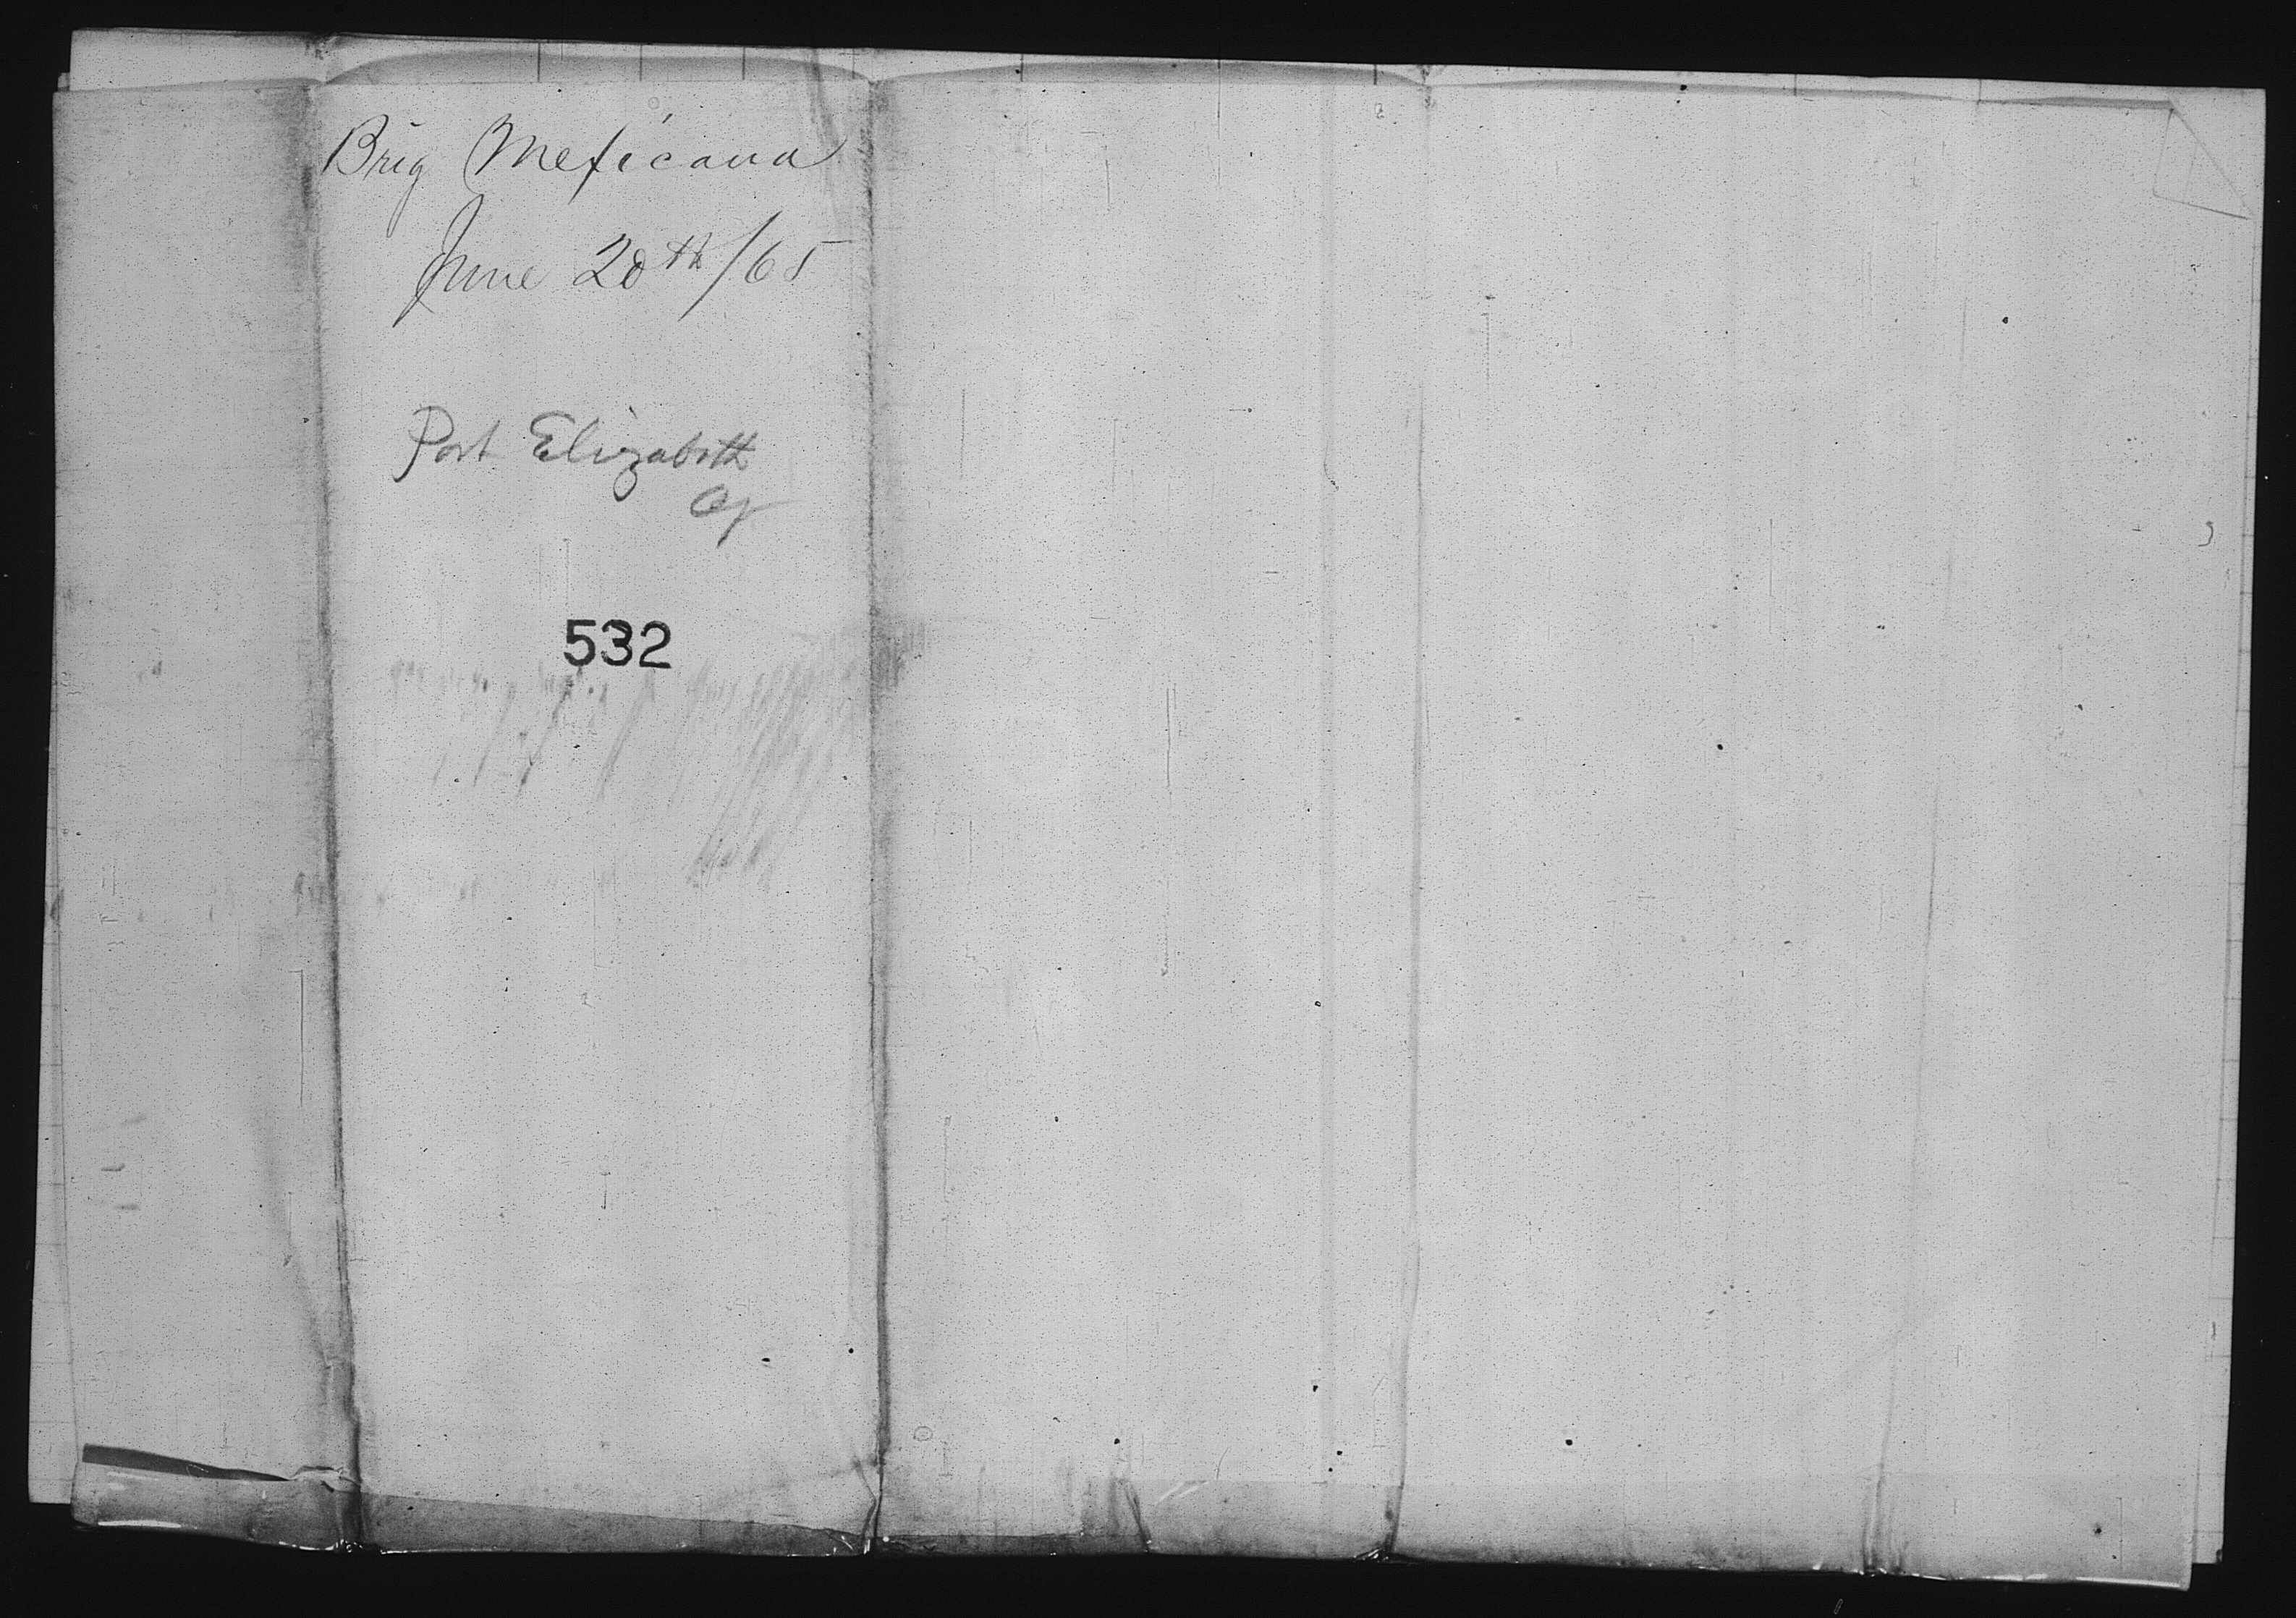 Brig Mexicana
June 20th/65
Port Elizabeth
532